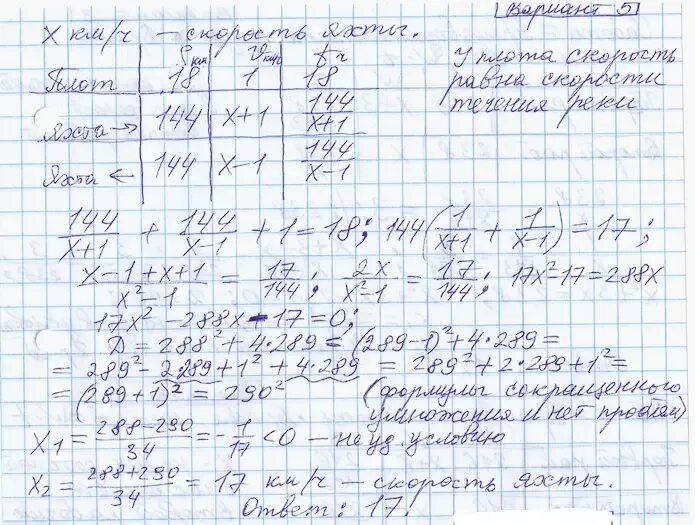 Вариант 5
x км/ч — скорость яхты.
S км | V км/ч | t ч
Плот | 18 | 1 | 18
Яхта → | 144 | x+1 | 144/(x+1)
Яхта ← | 144 | x−1 | 144/(x−1)
У плота скорость
равна скорости
течения реки
144/(x+1) + 144/(x−1) + 1 = 18; 144(1/(x+1) + 1/(x−1)) = 17;
(x−1+x+1)/(x²−1) = 17/144; 2x/(x²−1) = 17/144; 17x²−17=288x
17x² −288x −17=0;
D = 288² + 4·289 = (289−1)² + 4·289 =
= 289² − 2·289 + 1² + 4·289 = 289² + 2·289 + 1² =
= (289+1)² = 290² (формулы сокращенного
умножения и нет проблем)
x₁ = (288−290)/34 = −1/17 < 0 — не уд. условию
x₂ = (288+290)/34 = 17 км/ч — скорость яхты.
Ответ: 17.